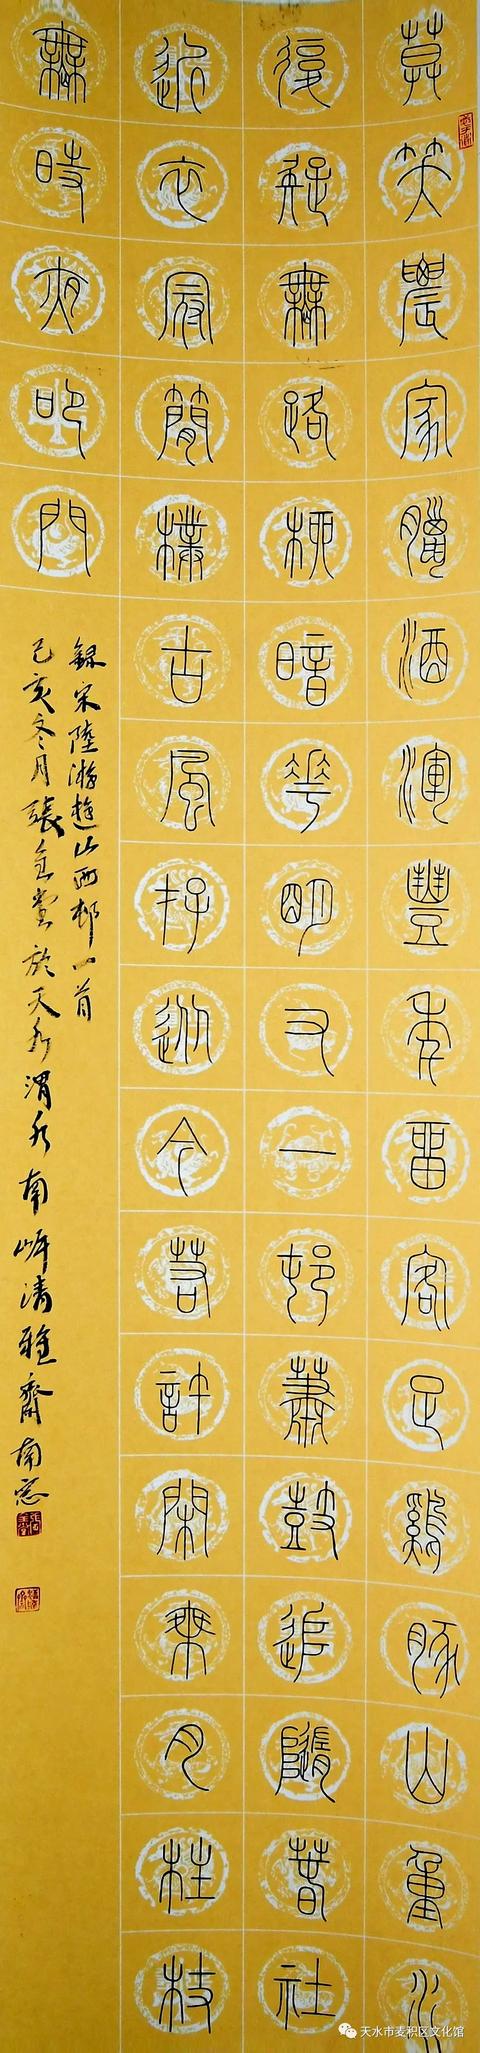 莫笑農家臘酒渾豐年畱客足鷄豚山重水
復疑無路桺暗花明又一邨蕭鼓追隨春社
近衣冠簡樸古風存從今若許閑乘月柱杖
無時夜叩門
録宋陸游遊山西邨一首
己亥冬月張金堂於天水渭水南岸清雅齋南窓
天水市麦积区文化馆